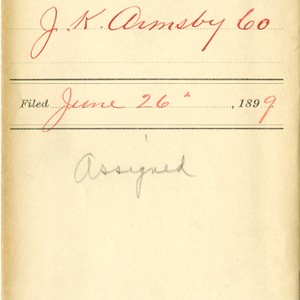 J. K. Armsby Co
Filed June 26", 1899.
Assigned